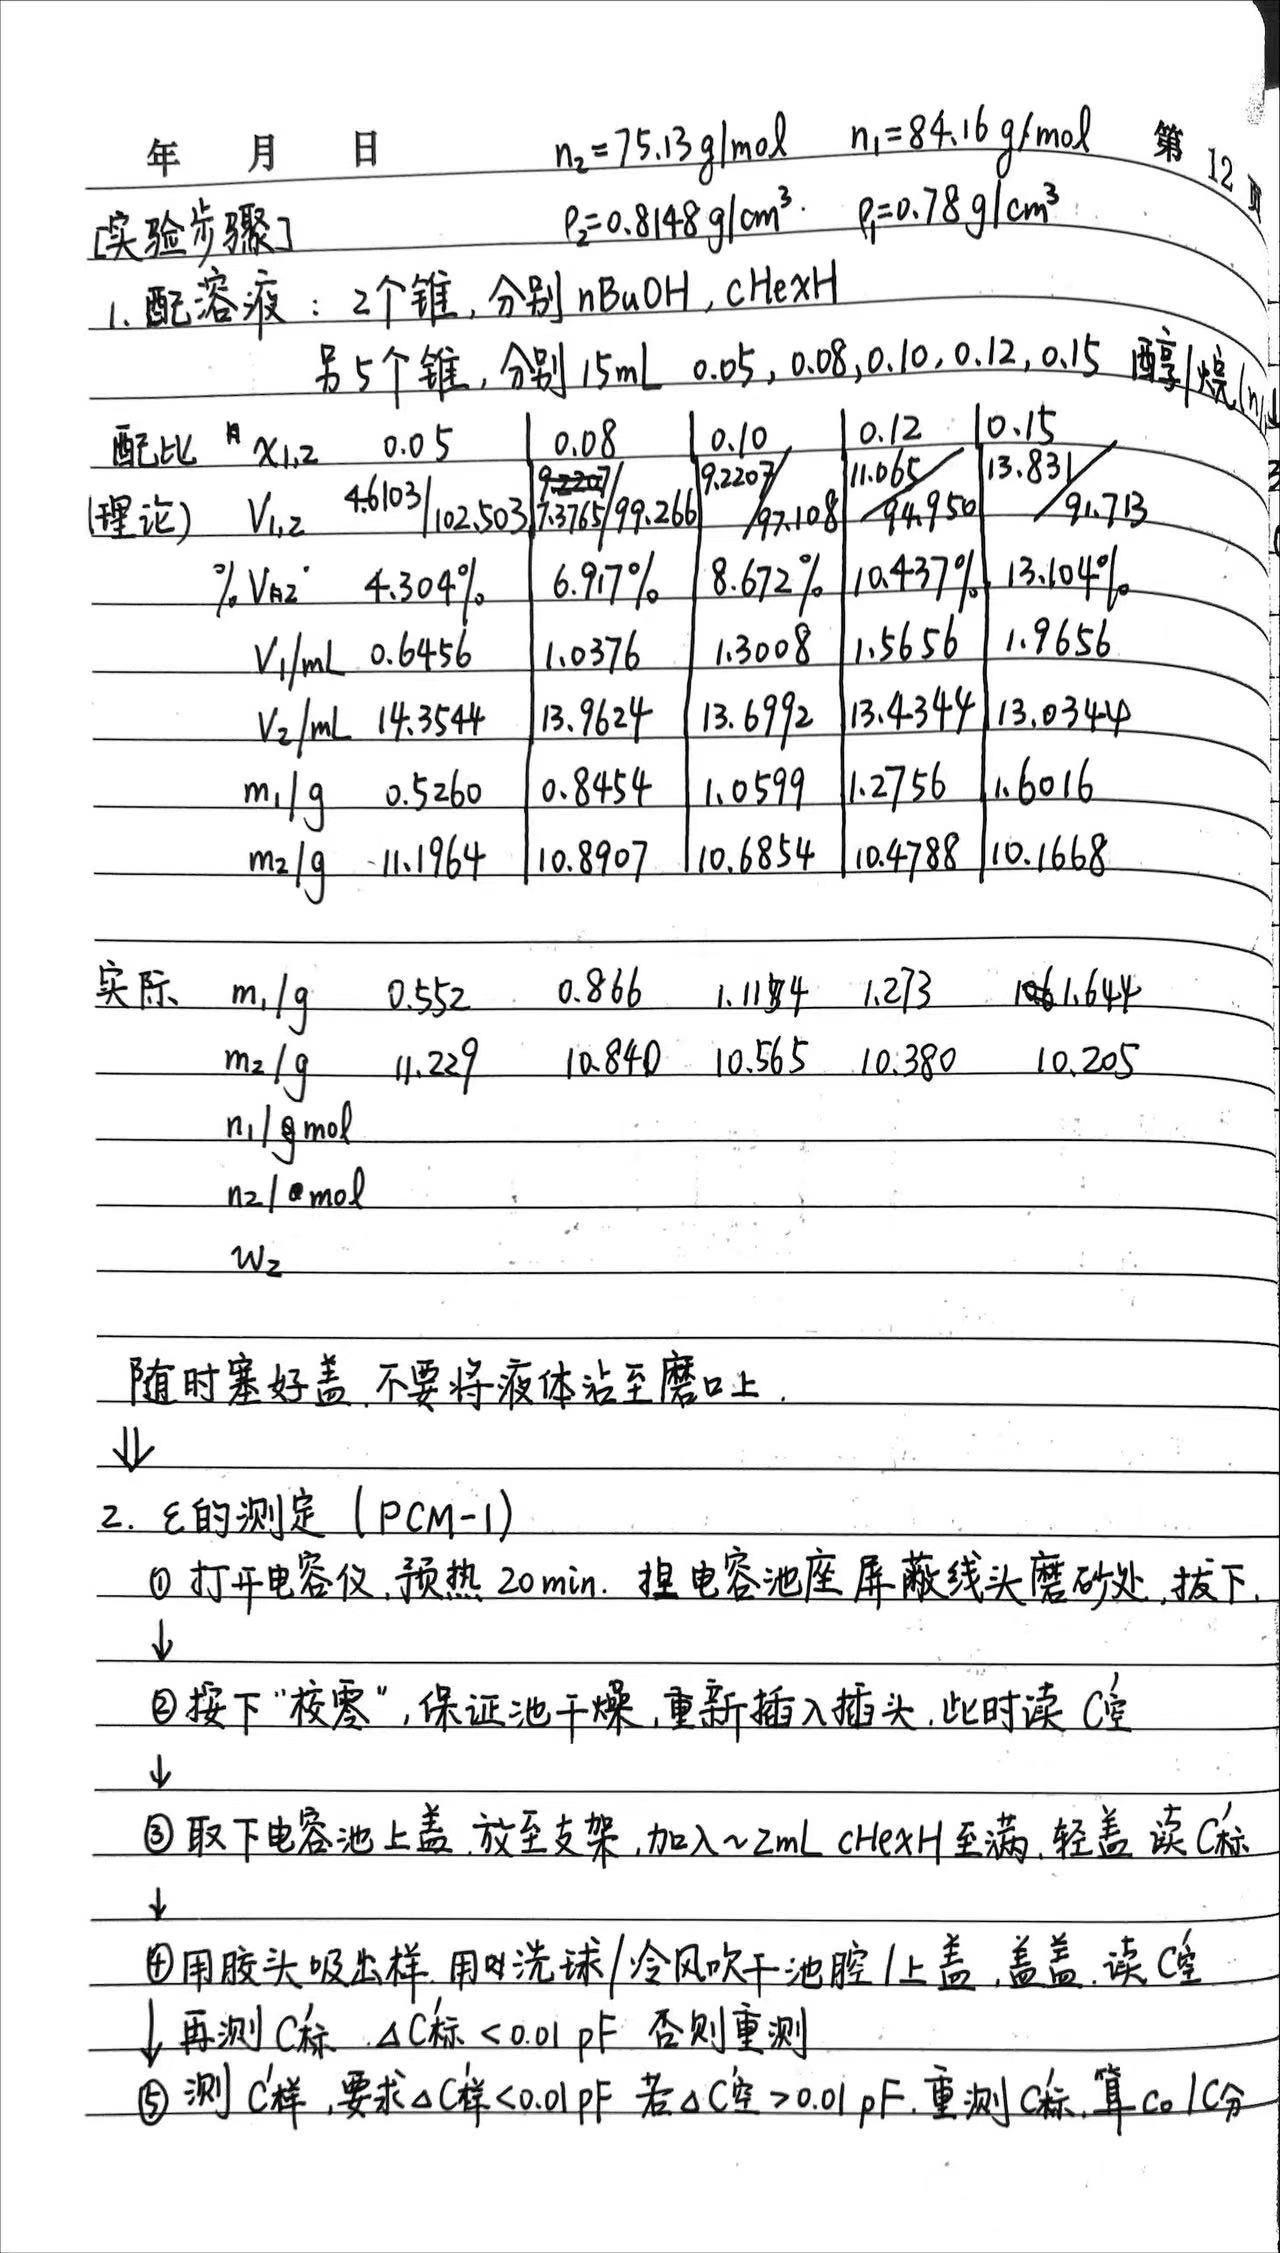 年 月 日 n₂=75.13g/mol n₁=84.16 g/mol 第 12 页
[实验步骤] ρ₂=0.8148g/cm³. ρ₁=0.78g/cm³
1. 配溶液：2个锥, 分别 nBuOH, cHexH
另5个锥, 分别15mL 0.05, 0.08, 0.10, 0.12, 0.15 醇/烷(n)
配比 x₁,₂ 0.05 0.08 0.10 0.12 0.15
(理论) V₁,₂ 4.6103/102.503 7.3765/99.266 9.2207/97.108 11.065/94.950 13.831/91.713
% V 4.304% 6.917% 8.672% 10.437% 13.104%
V₁/mL 0.6456 1.0376 1.3008 1.5656 1.9656
V₂/mL 14.3544 13.9624 13.6992 13.4344 13.0344
m₁/g 0.5260 0.8454 1.0599 1.2756 1.6016
m₂/g 11.1964 10.8907 10.6854 10.4788 10.1668
实际 m₁/g 0.552 0.866 1.273 1.644
m₂/g 11.229 10.840 10.565 10.380 10.205
n₁/mol
n₂/mol
w₂
随时塞好盖, 不要将液体沾至磨口上.
⇓
2. ε的测定 (PCM-1)
① 打开电容仪, 预热 20min. 捏电容池座屏蔽线头磨砂处, 拔下.
↓
② 按下"校零", 保证池干燥, 重新插入插头, 此时读 C'空
↓
③ 取下电容池上盖, 放至支架, 加入~2mL cHexH至满, 轻盖 读C'标
↓
④ 用胶头吸出样, 用洗球/冷风吹干池腔/上盖, 盖盖, 读C'空
↓ 再测C'标 ΔC'标<0.01pF 否则重测
⑤ 测C'样, 要求ΔC'样<0.01pF 若ΔC'空>0.01pF, 重测C'标, 算C₀/C分